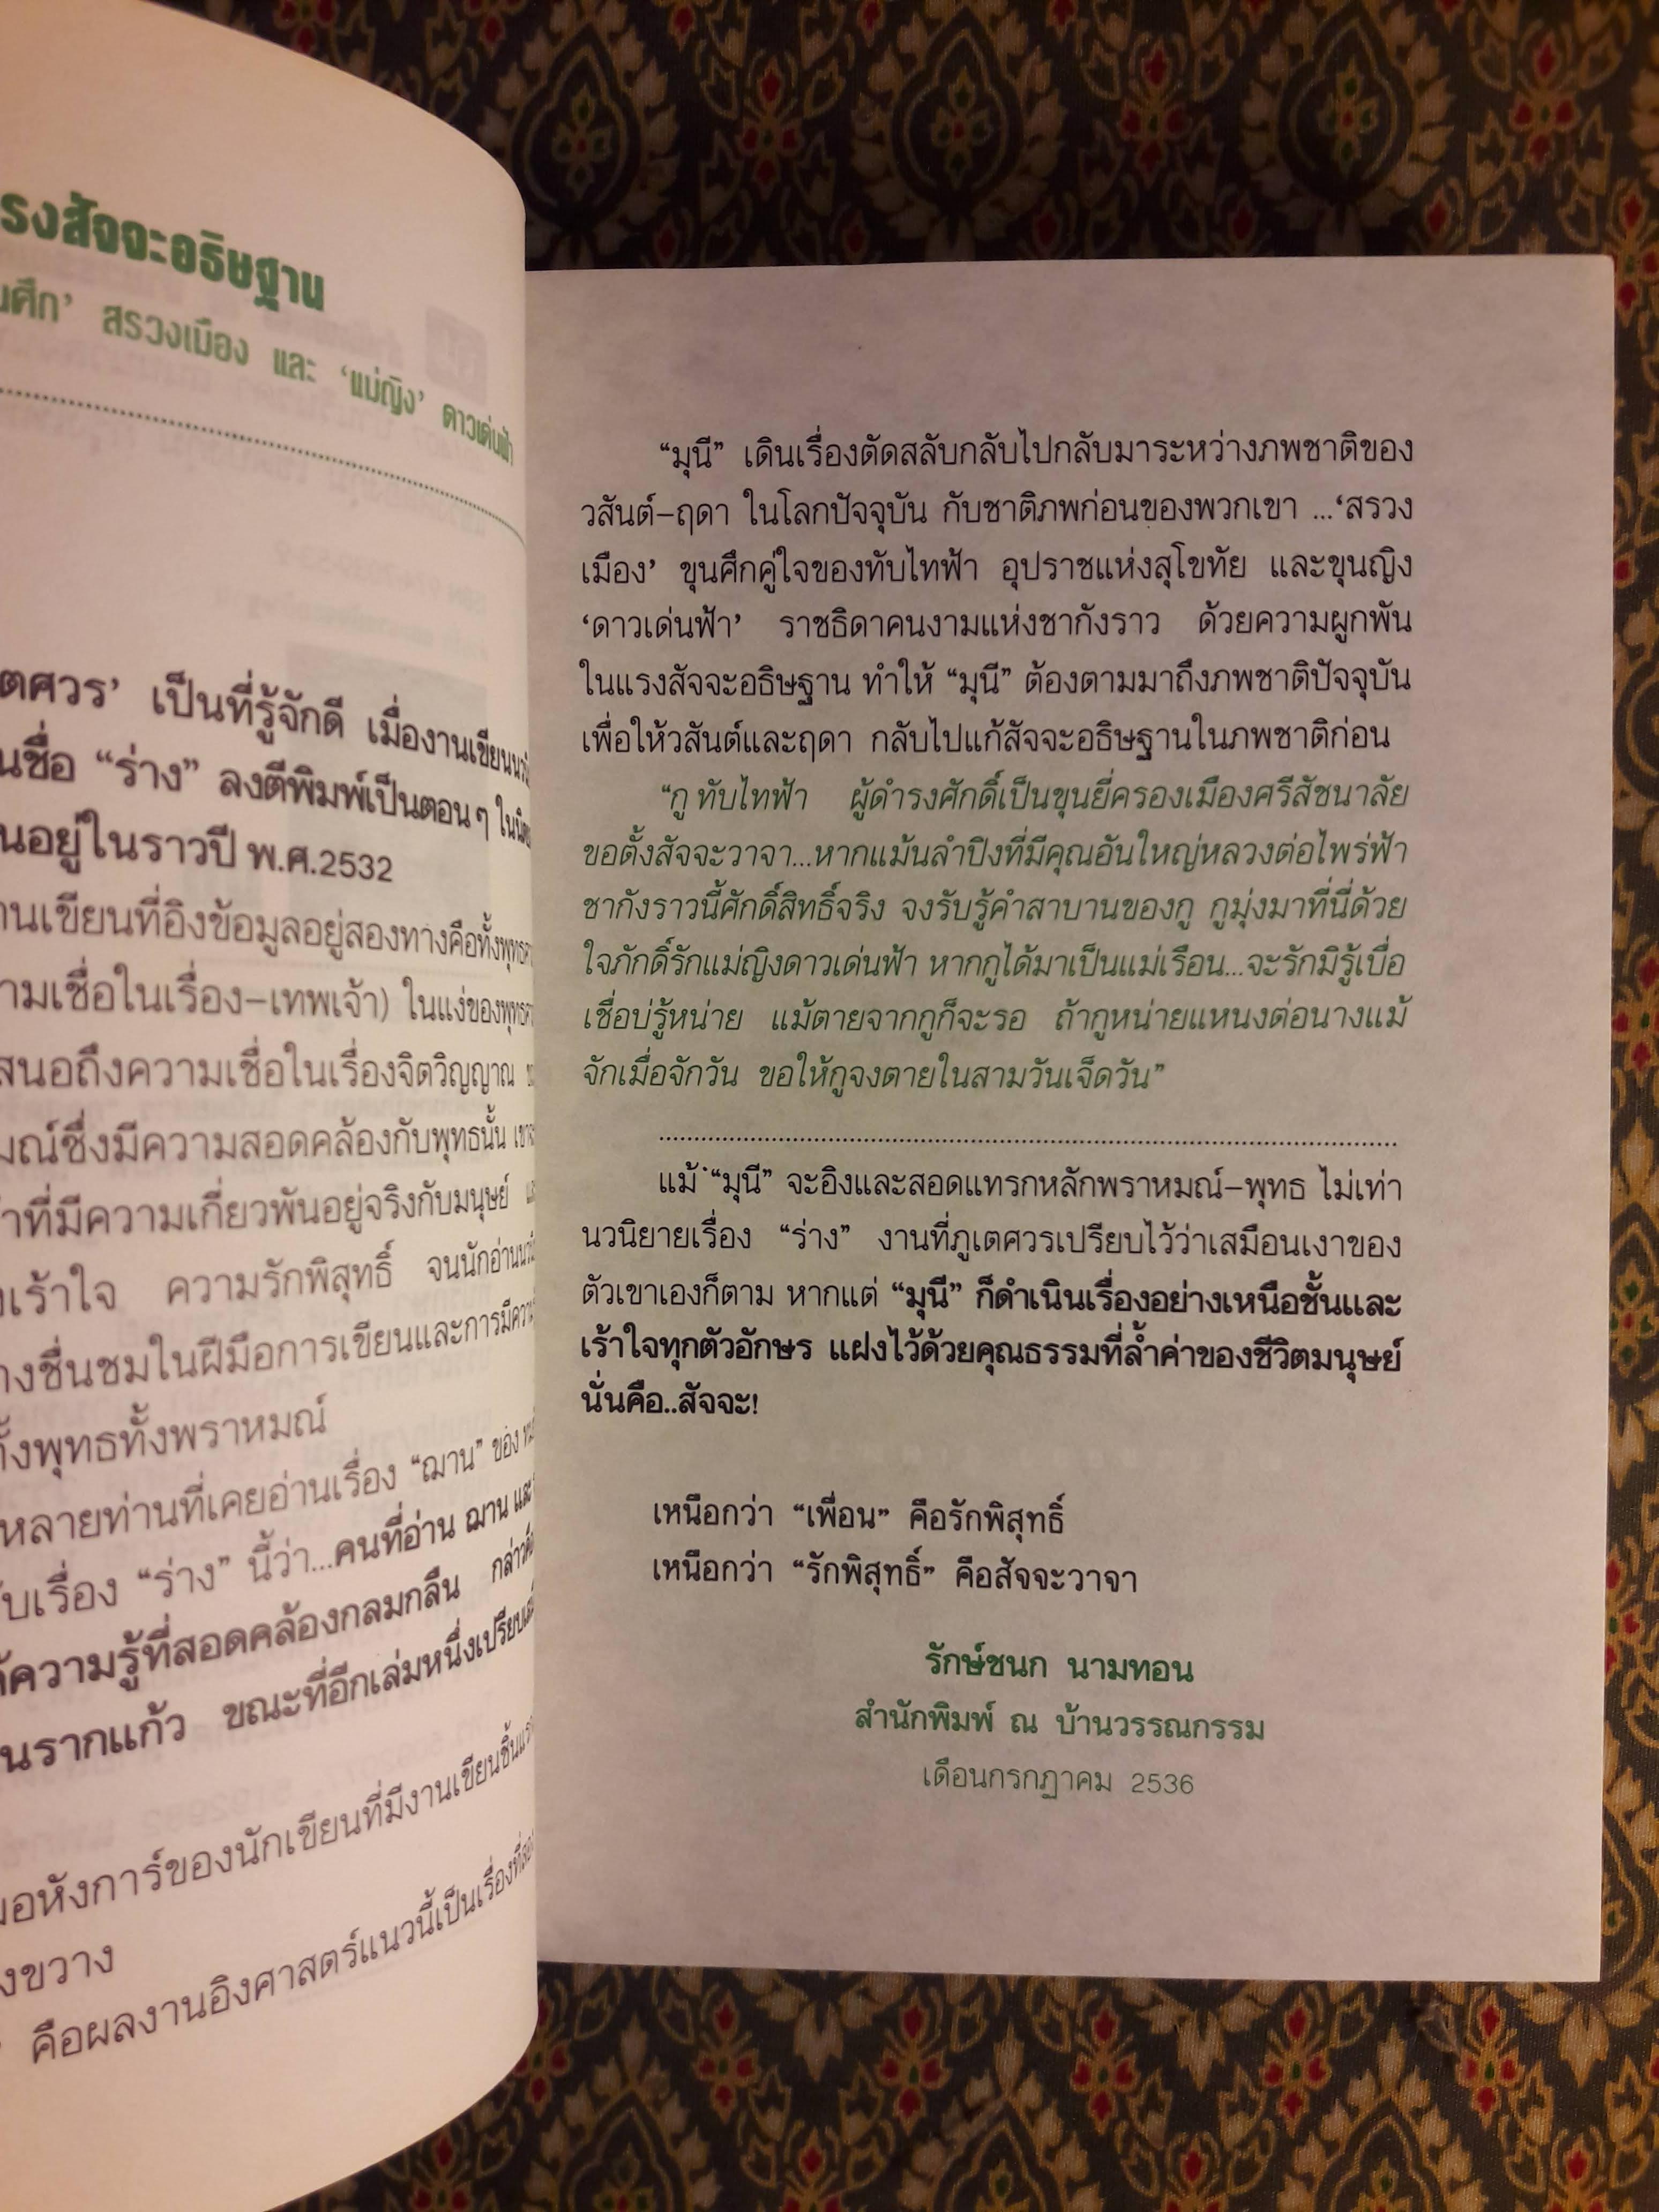 รงสัจจะอธิษฐาน
นศึก’ สรวงเมือง และ ‘แม่ญิง’ ดาวเด่นฟ้า
ตศวร’ เป็นที่รู้จักดี เมื่องานเขียน
นชื่อ “ร่าง” ลงตีพิมพ์เป็นตอนๆ
นอยู่ในราวปี พ.ศ.2532
านเขียนที่อิงข้อมูลอยู่สองทางคือทั้ง
ามเชื่อในเรื่อง–เทพเจ้า) ในแง่ของ
สนอถึงความเชื่อในเรื่องจิตวิญญาณ
มณ์ซึ่งมีความสอดคล้องกับพุทธนั้น
าที่มีความเกี่ยวพันอยู่จริงกับมนุษย์
งเร้าใจ ความรักพิสุทธิ์ จนนักอ่าน
างชื่นชมในฝีมือการเขียนและการมี
ทั้งพุทธทั้งพราหมณ์
หลายท่านที่เคยอ่านเรื่อง “ฌาน” ของ
ับเรื่อง “ร่าง” นี้ว่า...คนที่อ่าน ฌาน และ
ความรู้ที่สอดคล้องกลมกลืน
นรากแก้ว ขณะที่อีกเล่มหนึ่งเปรียบ
มอหังการ์ของนักเขียนที่มีงานเขียนชิ้น
งขวาง
คือผลงานอิงศาสตร์แนวนี้เป็นเรื่องที่
“มุนี” เดินเรื่องตัดสลับกลับไปกลับมาระหว่างภพชาติของ
วสันต์–ฤดา ในโลกปัจจุบัน กับชาติภพก่อนของพวกเขา ...‘สรวง
เมือง’ ขุนศึกคู่ใจของทับไทฟ้า อุปราชแห่งสุโขทัย และขุนญิง
‘ดาวเด่นฟ้า’ ราชธิดาคนงามแห่งชากังราว ด้วยความผูกพัน
ในแรงสัจจะอธิษฐาน ทำให้ “มุนี” ต้องตามมาถึงภพชาติปัจจุบัน
เพื่อให้วสันต์และฤดา กลับไปแก้สัจจะอธิษฐานในภพชาติก่อน
“กู ทับไทฟ้า ผู้ดำรงศักดิ์เป็นขุนยี่ครองเมืองศรีสัชนาลัย
ขอตั้งสัจจะวาจา...หากแม้นลำปิงที่มีคุณอันใหญ่หลวงต่อไพร่ฟ้า
ชากังราวนี้ศักดิ์สิทธิ์จริง จงรับรู้คำสาบานของกู กูมุ่งมาที่นี่ด้วย
ใจภักดิ์รักแม่ญิงดาวเด่นฟ้า หากกูได้มาเป็นแม่เรือน...จะรักมิรู้เบื่อ
เชื่อบ่รู้หน่าย แม้ตายจากกูก็จะรอ ถ้ากูหน่ายแหนงต่อนางแม้
จักเมื่อจักวัน ขอให้กูจงตายในสามวันเจ็ดวัน”
แม้ “มุนี” จะอิงและสอดแทรกหลักพราหมณ์–พุทธ ไม่เท่า
นวนิยายเรื่อง “ร่าง” งานที่ภูเตศวรเปรียบไว้ว่าเสมือนเงาของ
ตัวเขาเองก็ตาม หากแต่ “มุนี” ก็ดำเนินเรื่องอย่างเหนือชั้นและ
เร้าใจทุกตัวอักษร แฝงไว้ด้วยคุณธรรมที่ล้ำค่าของชีวิตมนุษย์
นั่นคือ..สัจจะ!
เหนือกว่า “เพื่อน” คือรักพิสุทธิ์
เหนือกว่า “รักพิสุทธิ์” คือสัจจะวาจา
รักษ์ชนก นามทอน
สำนักพิมพ์ ณ บ้านวรรณกรรม
เดือนกรกฎาคม 2536